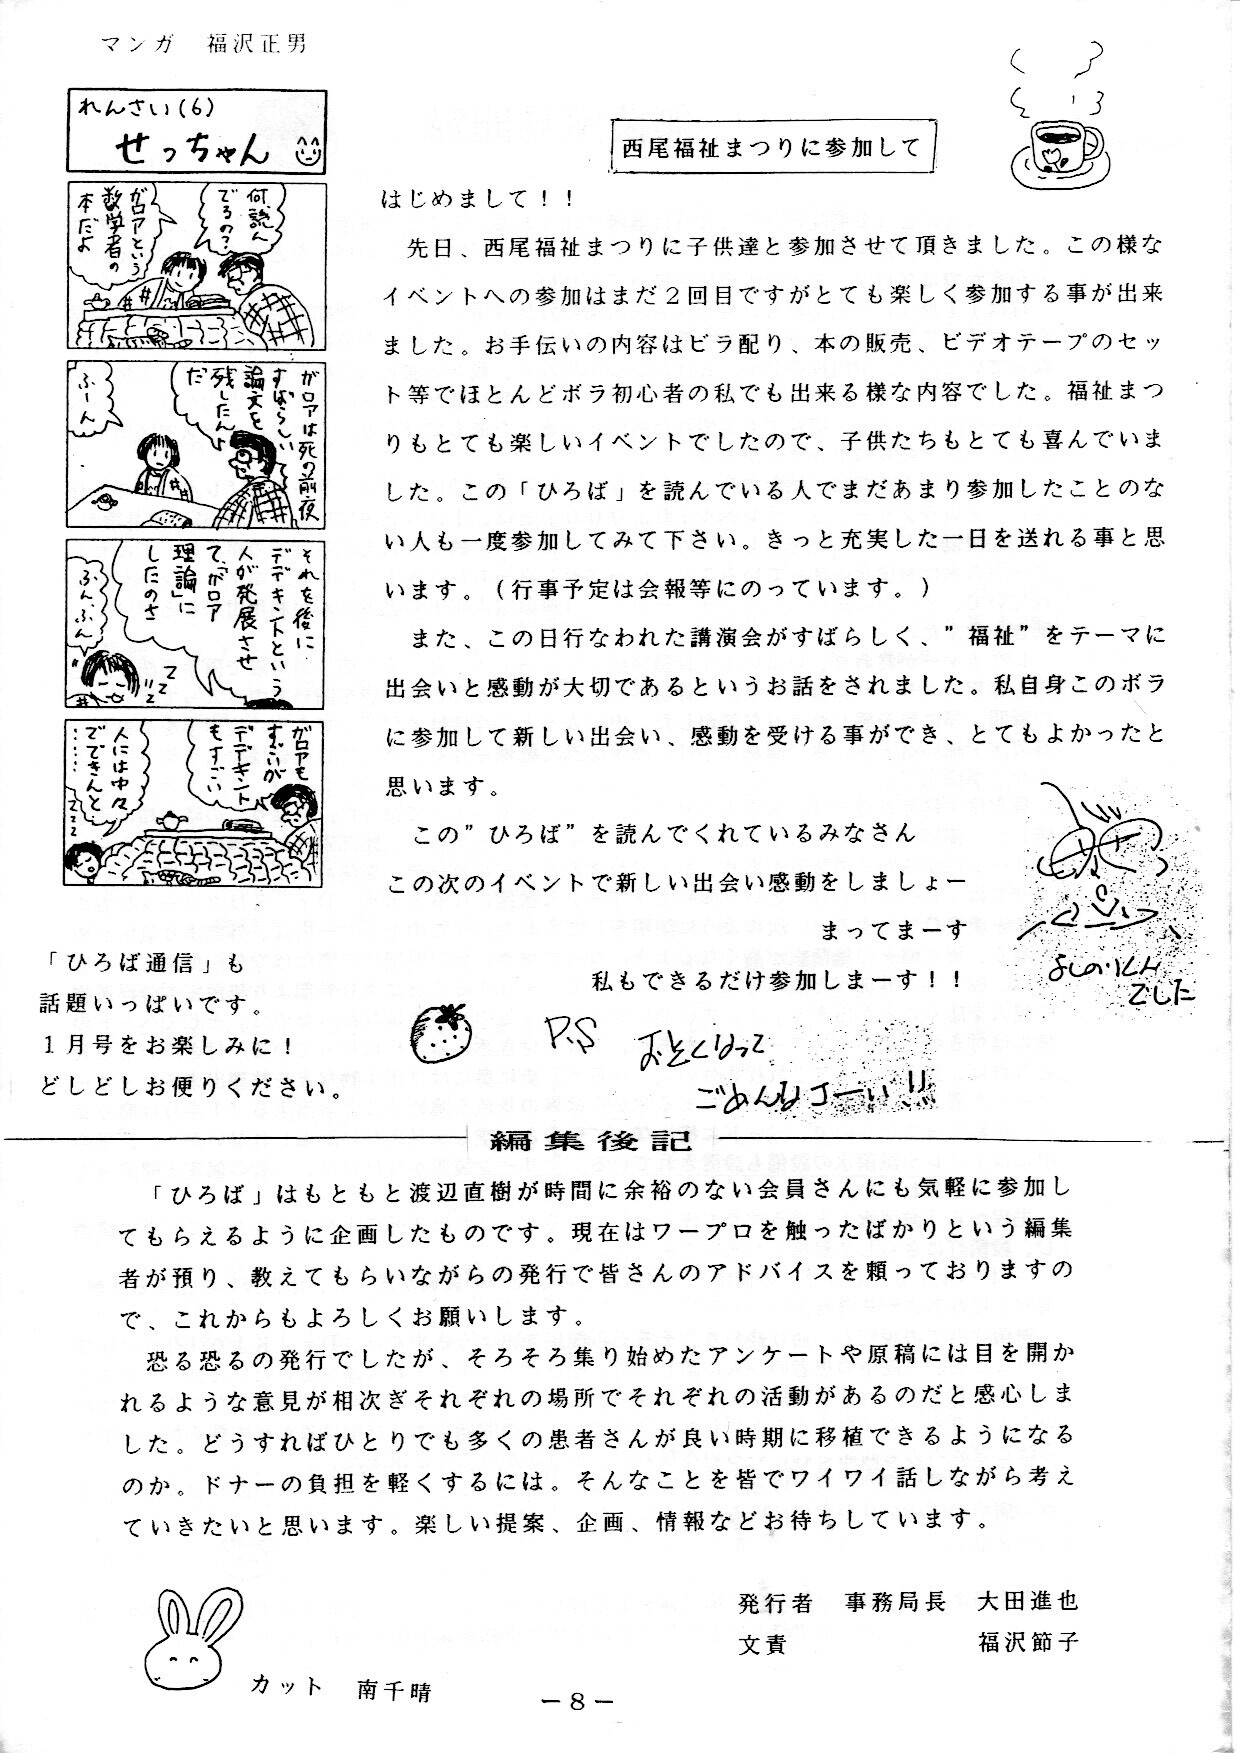 マンガ　福沢正男
れんさい(6)
せっちゃん
何、読ん
でるの?
ガロアという
数学者の
本だよ
ガロアは死の前夜
すばらしい
論文を
残したん
だ
ふーん
それを後に
デデキントという
人が発展させ
て、「ガロア
理論」に
したのさ
ふん、ふん
ZZZZ
ガロアも
すごいが
デデキント
もすごい
人には中々
でできんと
……ZZZ
西尾福祉まつりに参加して
はじめまして！！
　先日、西尾福祉まつりに子供達と参加させて頂きました。この様な
イベントへの参加はまだ２回目ですがとても楽しく参加する事が出来
ました。お手伝いの内容はビラ配り、本の販売、ビデオテープのセッ
ト等でほとんどボラ初心者の私でも出来る様な内容でした。福祉まつ
りもとても楽しいイベントでしたので、子供たちもとても喜んでいま
した。この「ひろば」を読んでいる人でまだあまり参加したことのな
い人も一度参加してみて下さい。きっと充実した一日を送れる事と思
います。（行事予定は会報等にのっています。）
　また、この日行なわれた講演会がすばらしく、”福祉”をテーマに
出会いと感動が大切であるというお話をされました。私自身このボラ
に参加して新しい出会い、感動を受ける事ができ、とてもよかったと
思います。
　この”ひろば”を読んでくれているみなさん
この次のイベントで新しい出会い感動をしましょー
まってまーす
私もできるだけ参加しまーす！！
でした
P.S　おそくなって
ごめんなさーい!!
「ひろば通信」も
話題いっぱいです。
１月号をお楽しみに！
どしどしお便りください。
編集後記
　「ひろば」はもともと渡辺直樹が時間に余裕のない会員さんにも気軽に参加し
てもらえるように企画したものです。現在はワープロを触ったばかりという編集
者が預り、教えてもらいながらの発行で皆さんのアドバイスを頼っておりますの
で、これからもよろしくお願いします。
　恐る恐るの発行でしたが、そろそろ集り始めたアンケートや原稿には目を開か
れるような意見が相次ぎそれぞれの場所でそれぞれの活動があるのだと感心しま
した。どうすればひとりでも多くの患者さんが良い時期に移植できるようになる
のか。ドナーの負担を軽くするには。そんなことを皆でワイワイ話しながら考え
ていきたいと思います。楽しい提案、企画、情報などお待ちしています。
発行者　事務局長　大田進也
文責　福沢節子
カット　南千晴
－８－